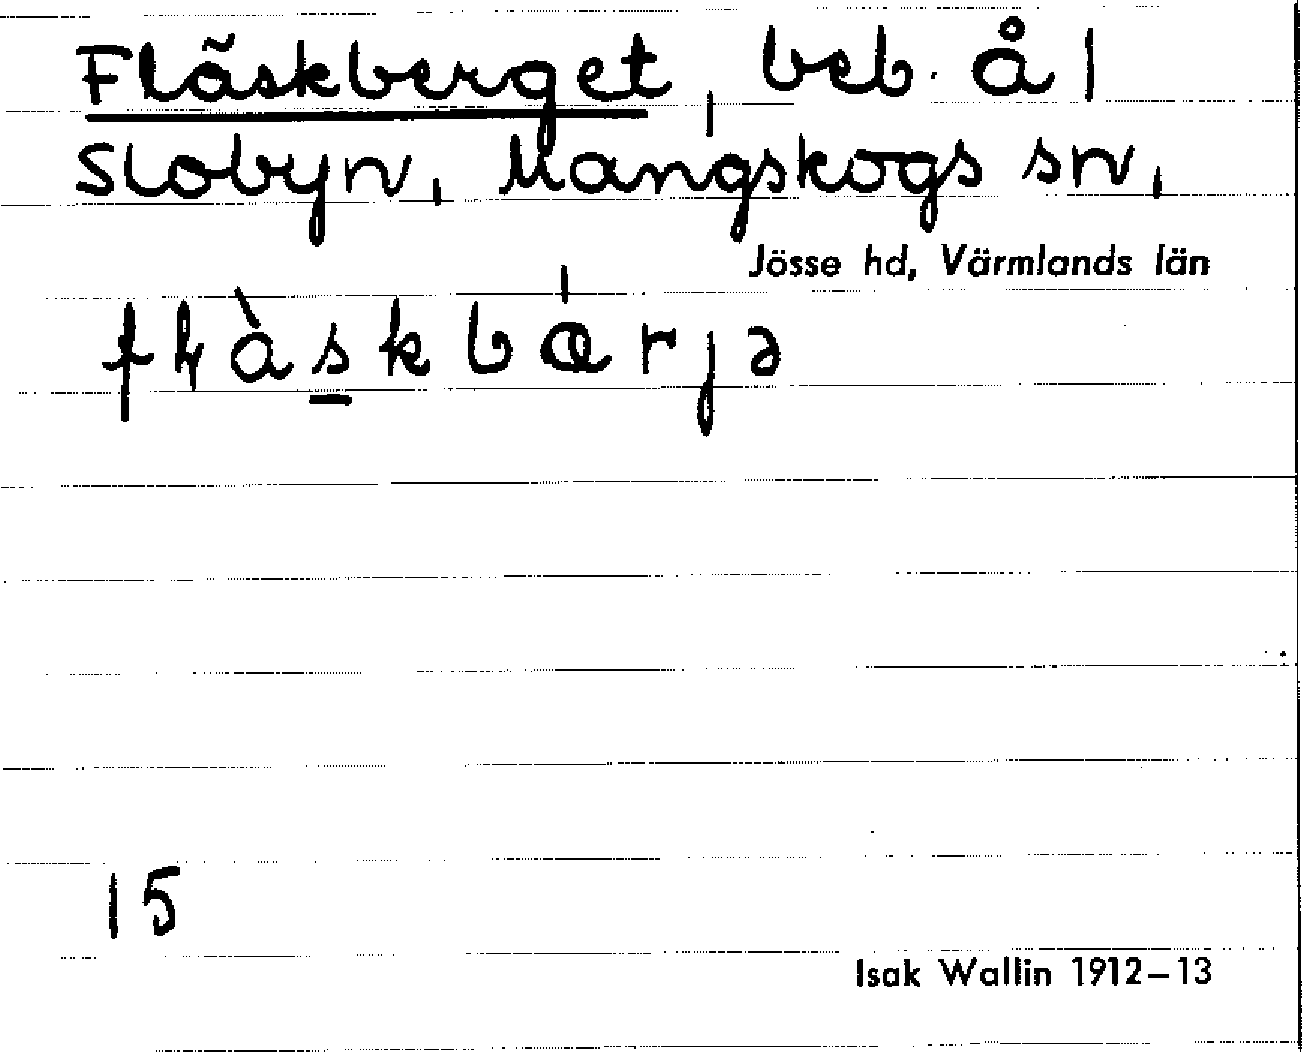 Fläskberget, beb. å 1
Slobyn, Mangskogs sn,
Jösse hd, Värmlands län
flàskbárjə
15
Isak Wallin 1912–13